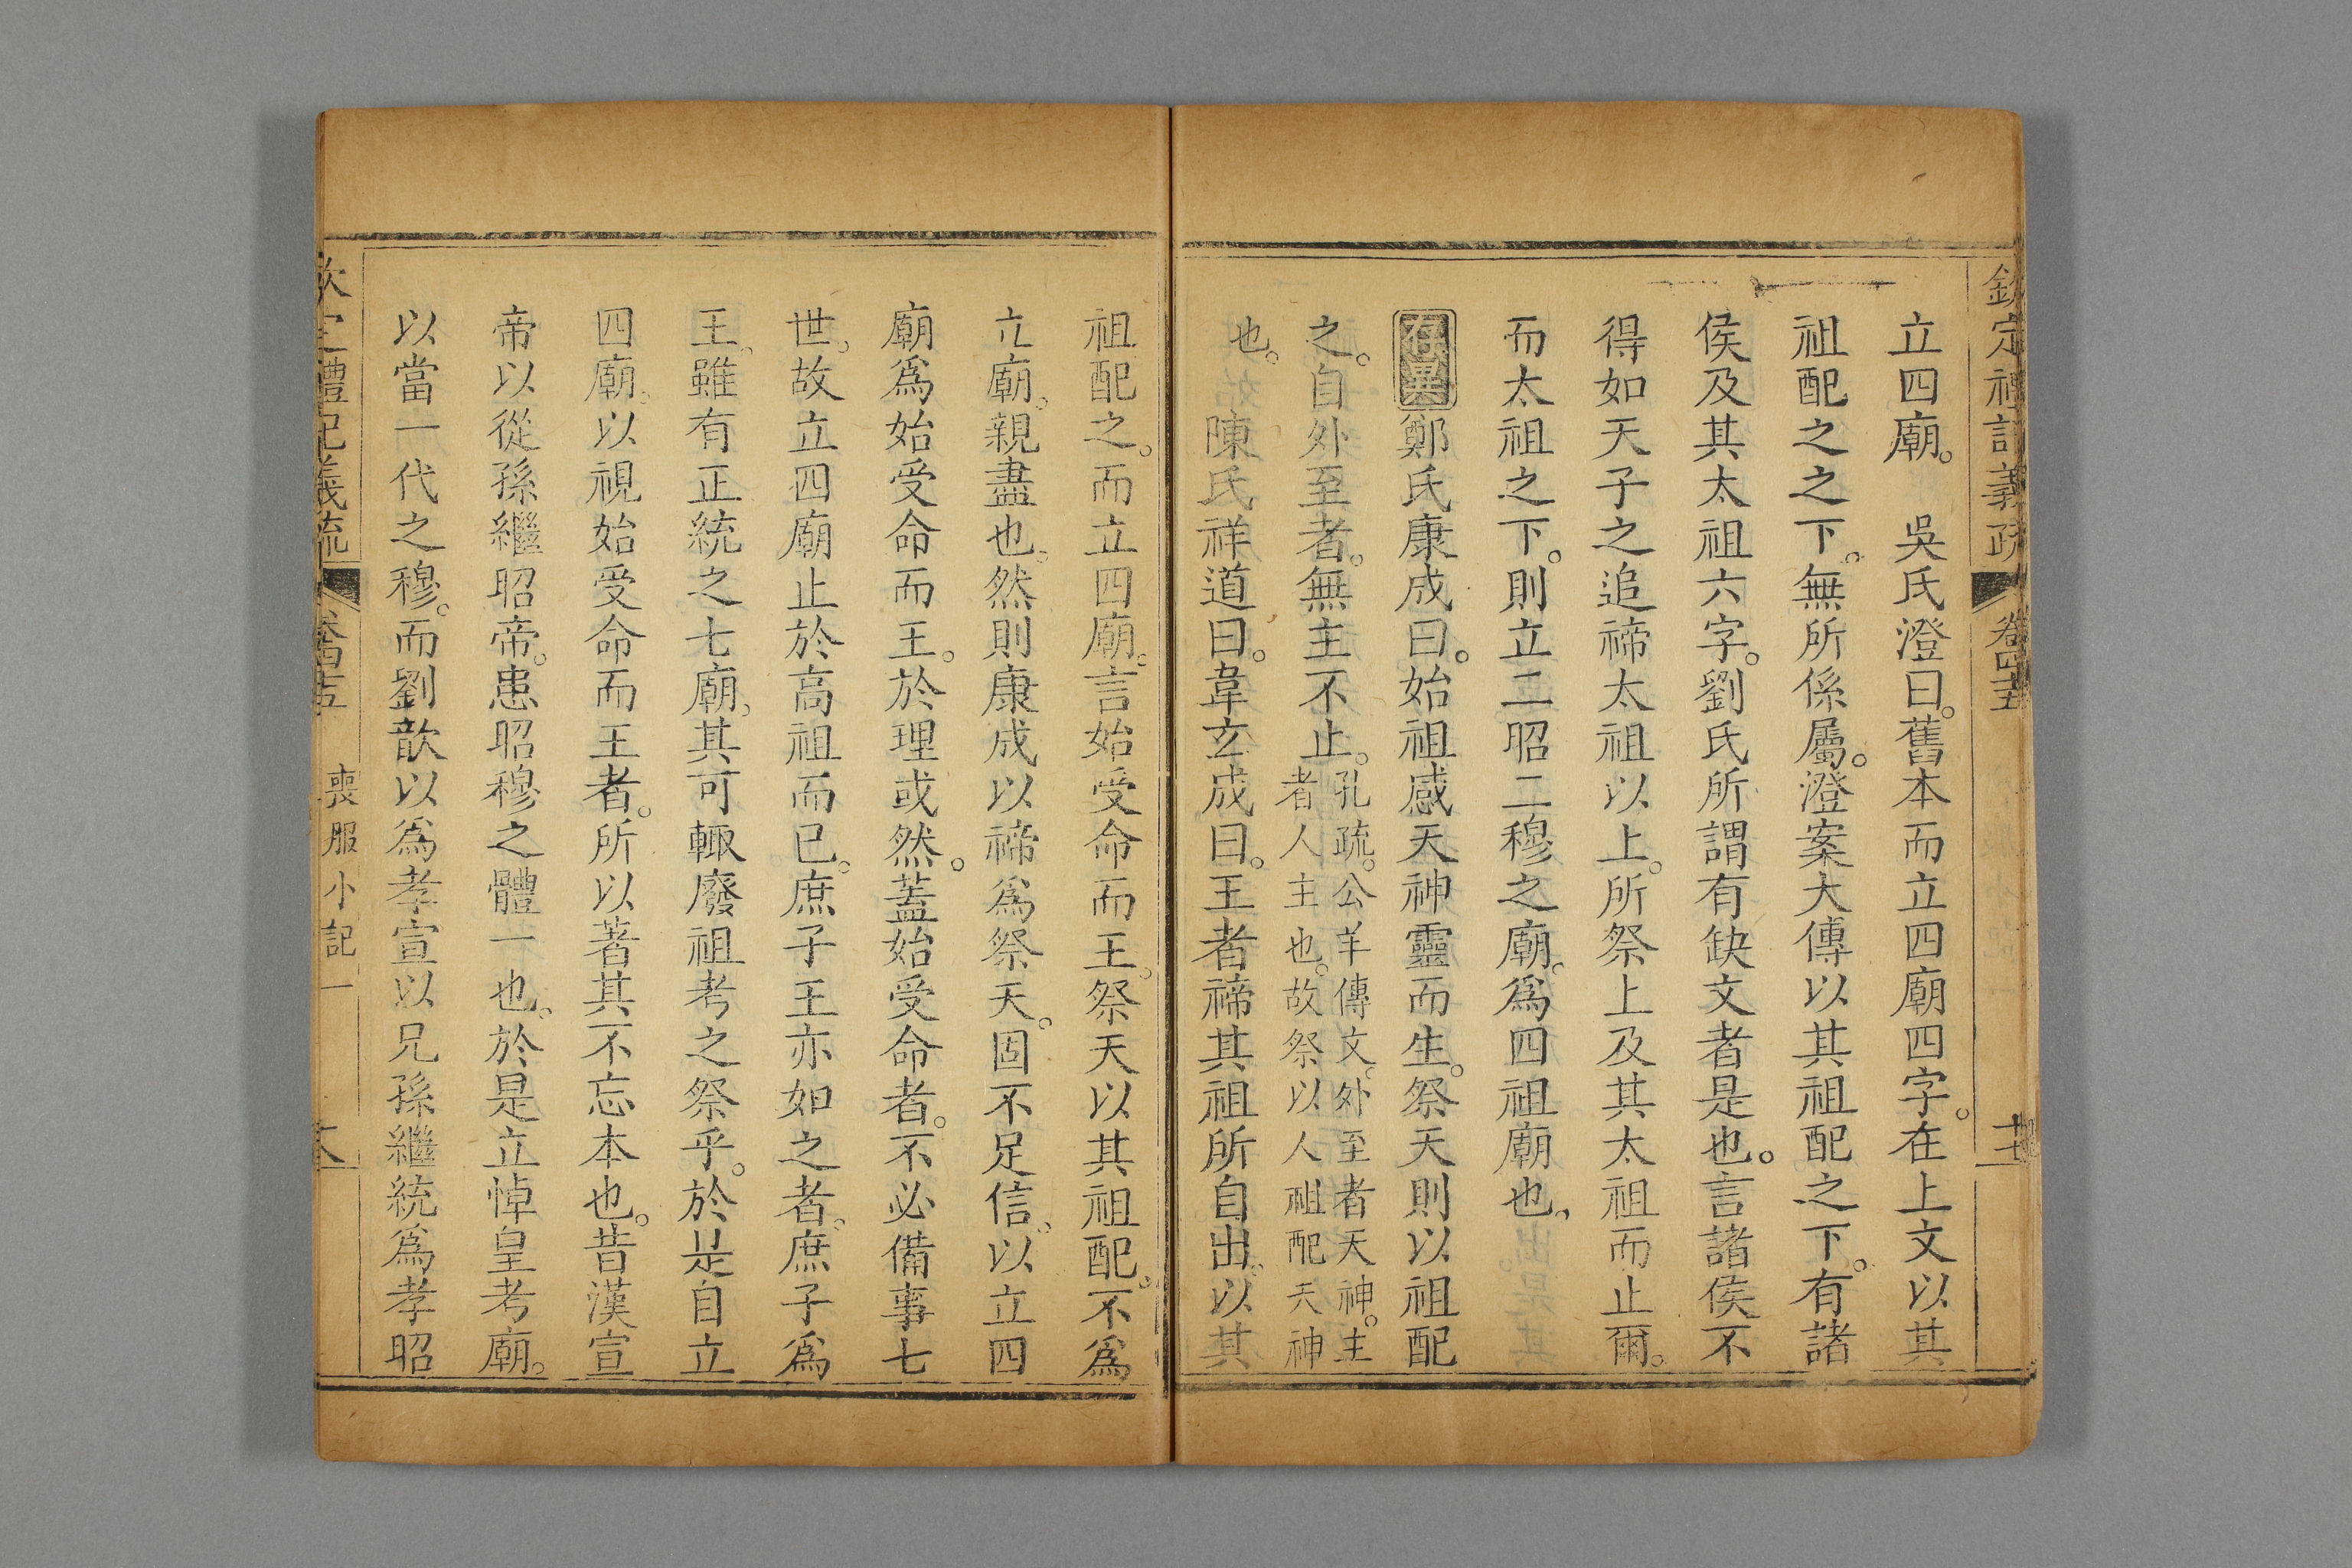 欽定禮記義疏 卷四十五
立四廟。 吳氏澄曰。舊本而立四廟四字。在上文以其
祖配之之下。無所係屬。澄案大傳以其祖配之下。有諸
侯及其太祖六字。劉氏所謂有缺文者是也。言諸侯不
得如天子之追禘太祖以上。所祭上及其太祖而止爾。
而太祖之下。則立二昭二穆之廟。為四祖廟也。
存異 鄭氏康成曰。始祖感天神靈而生。祭天則以祖配
之。自外至者。無主不止。孔疏。公羊傳文。外至者天神。主
者人主也。故祭以人祖配天神
也。 陳氏祥道曰。韋玄成曰。王者禘其祖所自出。以其
祖配之。而立四廟。言始受命而王。祭天以其祖配。不為
立廟。親盡也。然則康成以禘為祭天。固不足信。以立四
廟為始受命而王。於理或然。蓋始受命者。不必備事七
世。故立四廟止於高祖而已。庶子王亦如之者。庶子為
王。雖有正統之七廟。其可輒廢祖考之祭乎。於是自立
四廟。以視始受命而王者。所以著其不忘本也。昔漢宣
帝以從孫繼昭帝。患昭穆之體一也。於是立悼皇考廟。
以當一代之穆。而劉歆以為孝宣以兄孫繼統為孝昭
欽定禮記義疏 卷四十五 喪服小記一